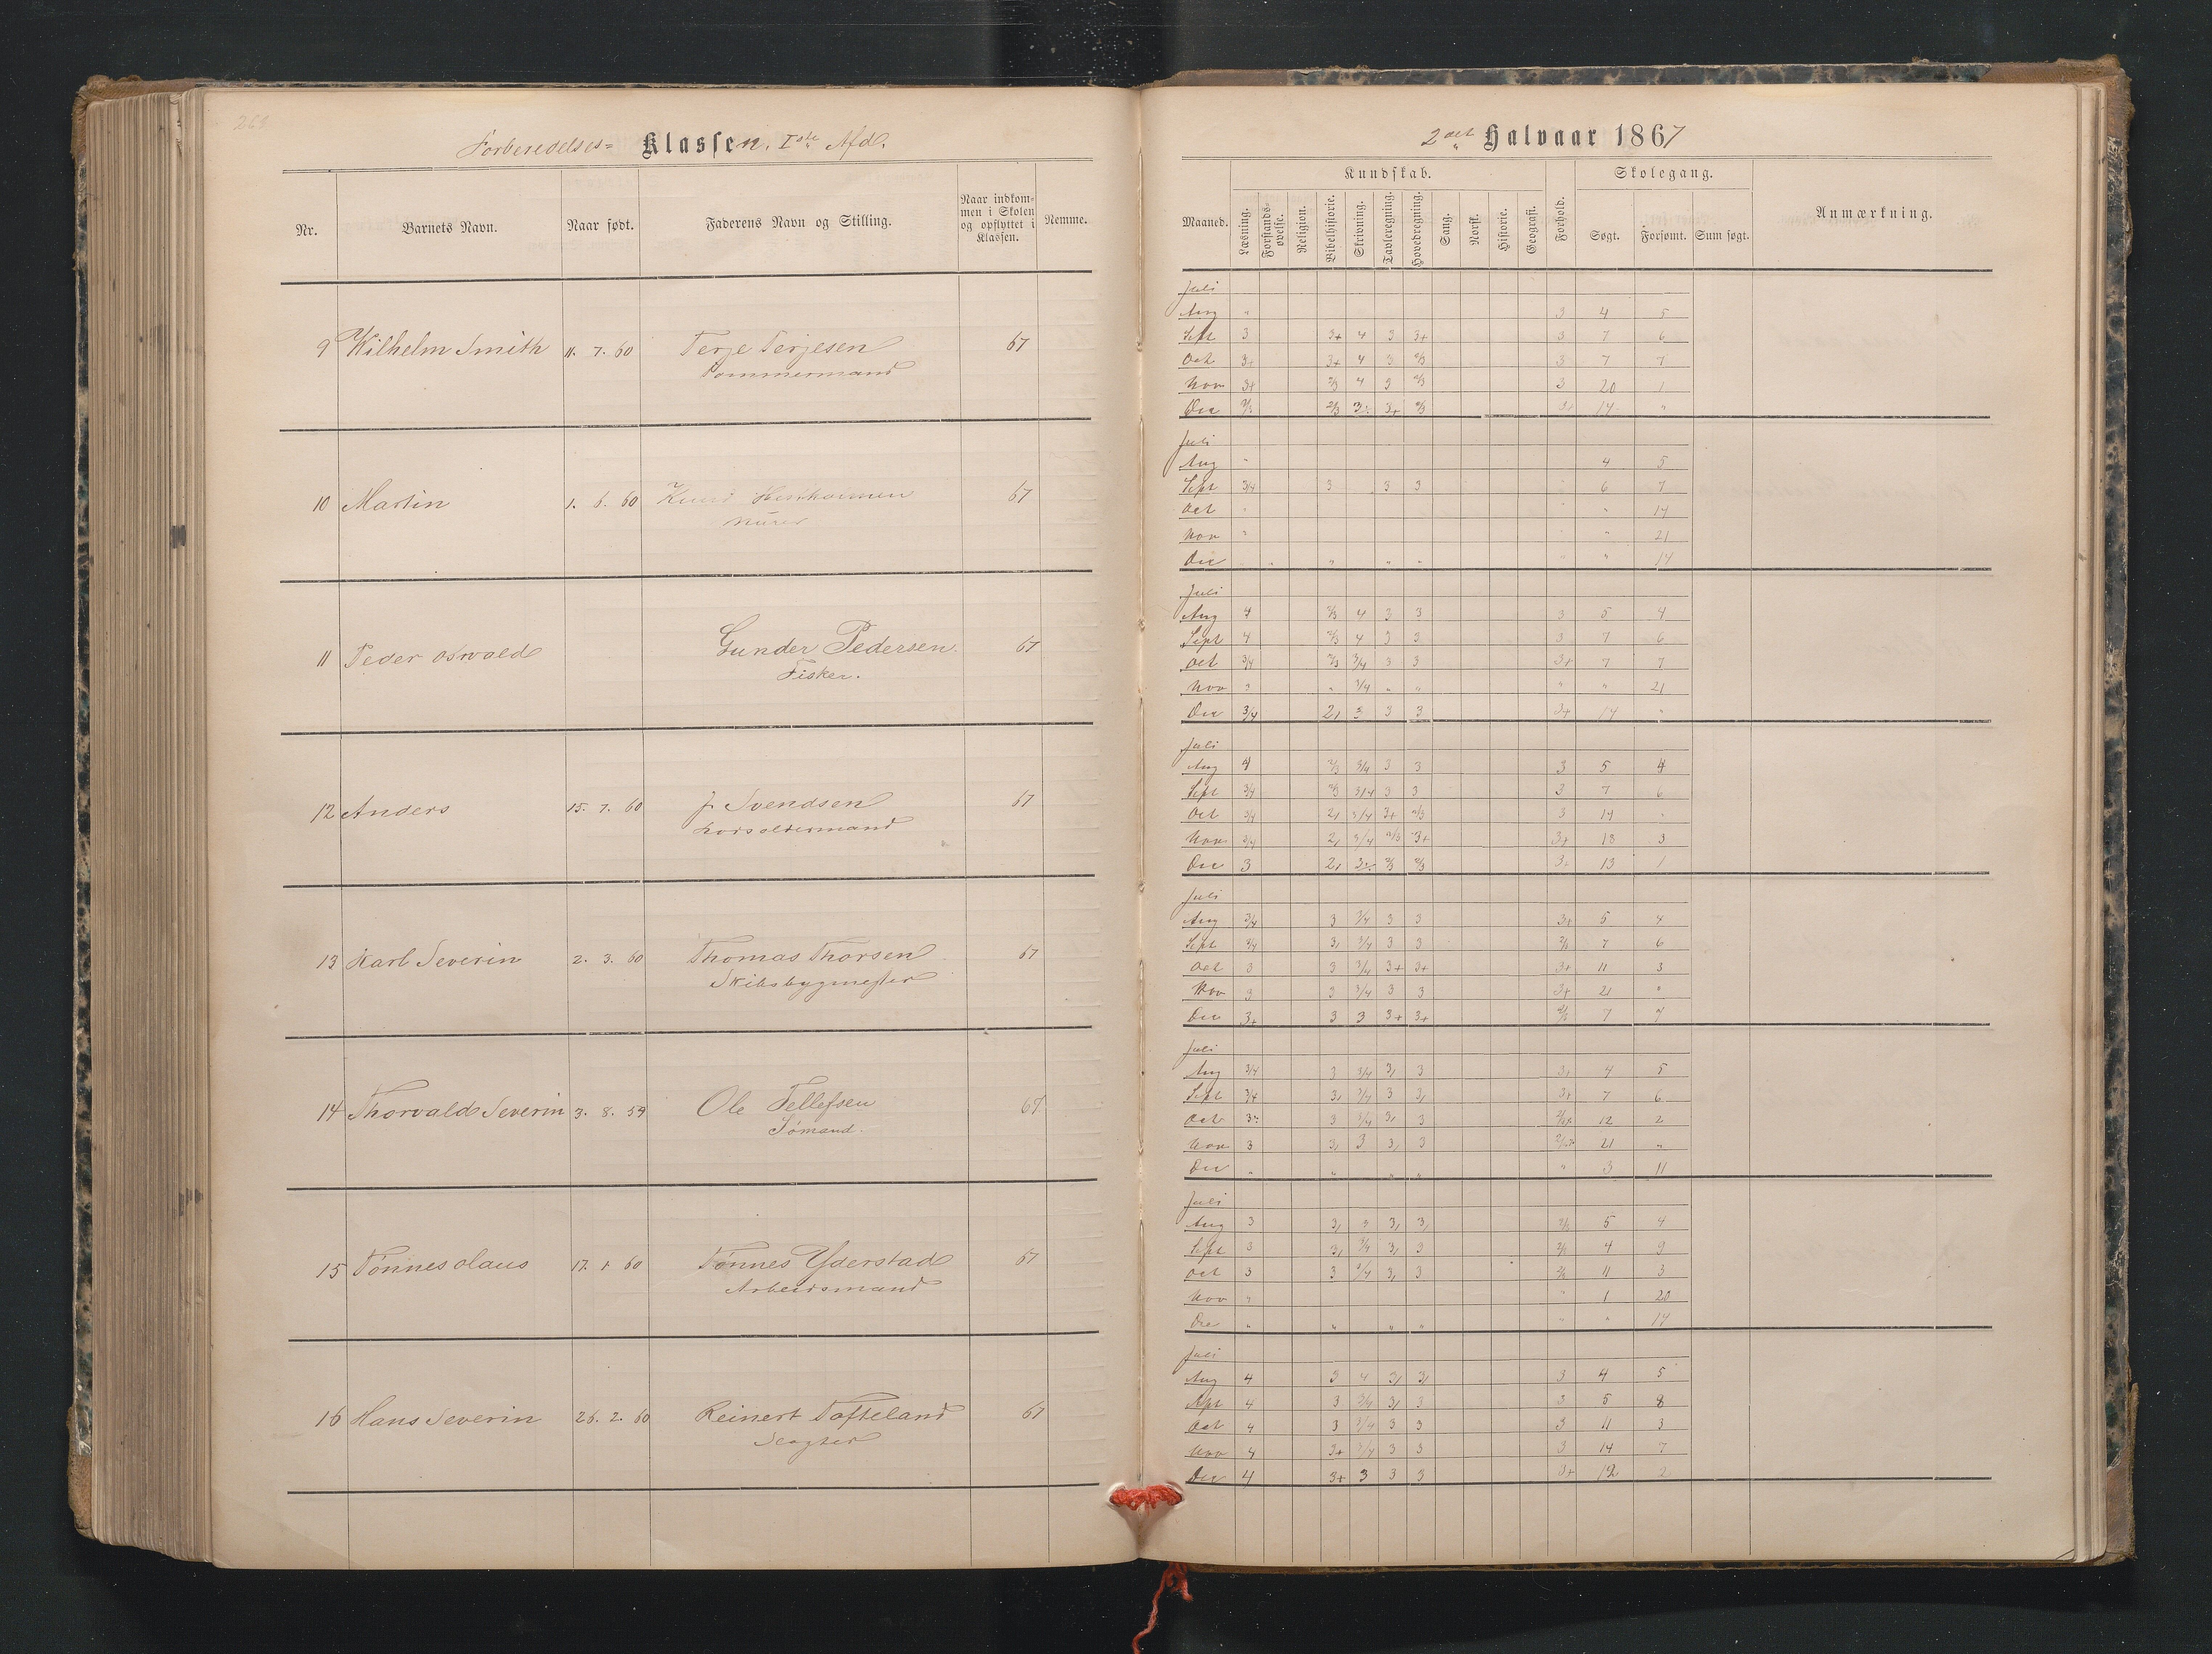 Forberedelses= Klassen. Iste Afd.
Nr. Barnets Navn. Naar født. Faderens Navn og Stilling. Naar indkom=men i Skolen og opflyttet i Klassen. Nemme.
9 Wilhelm Smith 11. 7. 60 Terje Terjesen 67
Tømmermand
10 Martin 1. 6. 60 Knud 67
Murer
11 Peder Oswald Gunder Pedersen 67
Fisker.
12 Anders 15. 7. 60 J. Svendsen 67
Lodsoldermand
13 Karl Severin 2. 3. 60 Thomas Thorsen 67
Skibsbygmester
14 Thorvald Severin 3. 8. 59 Ole Tellefsen 67
Sømand.
15 Tønnes Olaus 17. 1 60 Tønnes Yderstad 67
Arbeidsmand
16 Hans Severin 26. 2. 60 Reinert Tofteland 67
Slagter
2det Halvaar 1867
Kundskab. Skolegang.
Maaned. Læsning. Forstands-øvelse. Religion. Bibelhistorie. Skrivning. Tavleregning. Hovedregning. Sang. Norsk. Historie. Geografi. Forhold. Søgt. Forsømt. Sum søgt. Anmærkning.
Juli
Aug " 3 4 5
Sept 3 3+ 4 3 3+ 3 7 6
Oct 3+ 3+ 4 3 2/3 3 7 7
Nov 3+ 2/3 4 3 2/3 3 20 1
Dec 2/3 2/3 3 3+ 2/3 3 14 "
Juli
Aug " 4 5
Sept 3/4 3 3 3 6 7
Oct " " 14
Nov " " 21
Dec " " " " " 14
Juli
Aug 4 2/3 4 3 3 3 5 4
Sept 4 2/3 4 3 3 3 7 6
Oct 3/4 2/3 3/4 3 3 3+ 7 7
Nov " " 3/4 " " " " 21
Dec 3/4 2, 3 3 3 3+ 14 "
Juli
Aug 4 2/3 3/4 3 3 3 5 4
Sept 3/4 2/3 3/4 3 3 3 7 6
Oct 3/4 2, 3/4 3+ 2/3 3 14 "
Nov 3/4 2, 3/4 2/3 3+ 3+ 18 3
Dec 3 2, 3 2/3 2/3 3+ 13 1
Juli
Aug 3/4 3 3/4 3 3 3+ 5 4
Sept 3/4 3, 3/4 3 3 2/3 7 6
Oct 3 3 3/4 3+ 3+ 3+ 11 3
Nov 3 3 3/4 3 3 3+ 21 "
Dec 3+ 3 3 3+ 3+ 2/3 7 7
Juli
Aug 3/4 3 3/4 3, 3 3, 4 5
Sept 3/4 3, 3/4 3 3, 3+ 7 6
Oct 3 3 3/4 3, 3 12 2
Nov 3 3, 3 3, 3 21 "
Dec " " " " " 3 11
Juli
Aug 3 3, 3 3, 3, 2/3 5 4
Sept 3 3, 3/4 3, 3 2/3 4 9
Oct 3 3 3/4 3, 3 2/3 11 3
Nov " " 1 20
Dec " " " " " " 14
Juli
Aug 4 3 4 3, 3, 3 4 5
Sept 4 3 3/4 3, 3 3 5 8
Oct 4 3 3/4 3 3 3 11 3
Nov 4 3+ 3/4 3 3 3 14 7
Dec 4 3+ 3 3 3 3+ 12 2